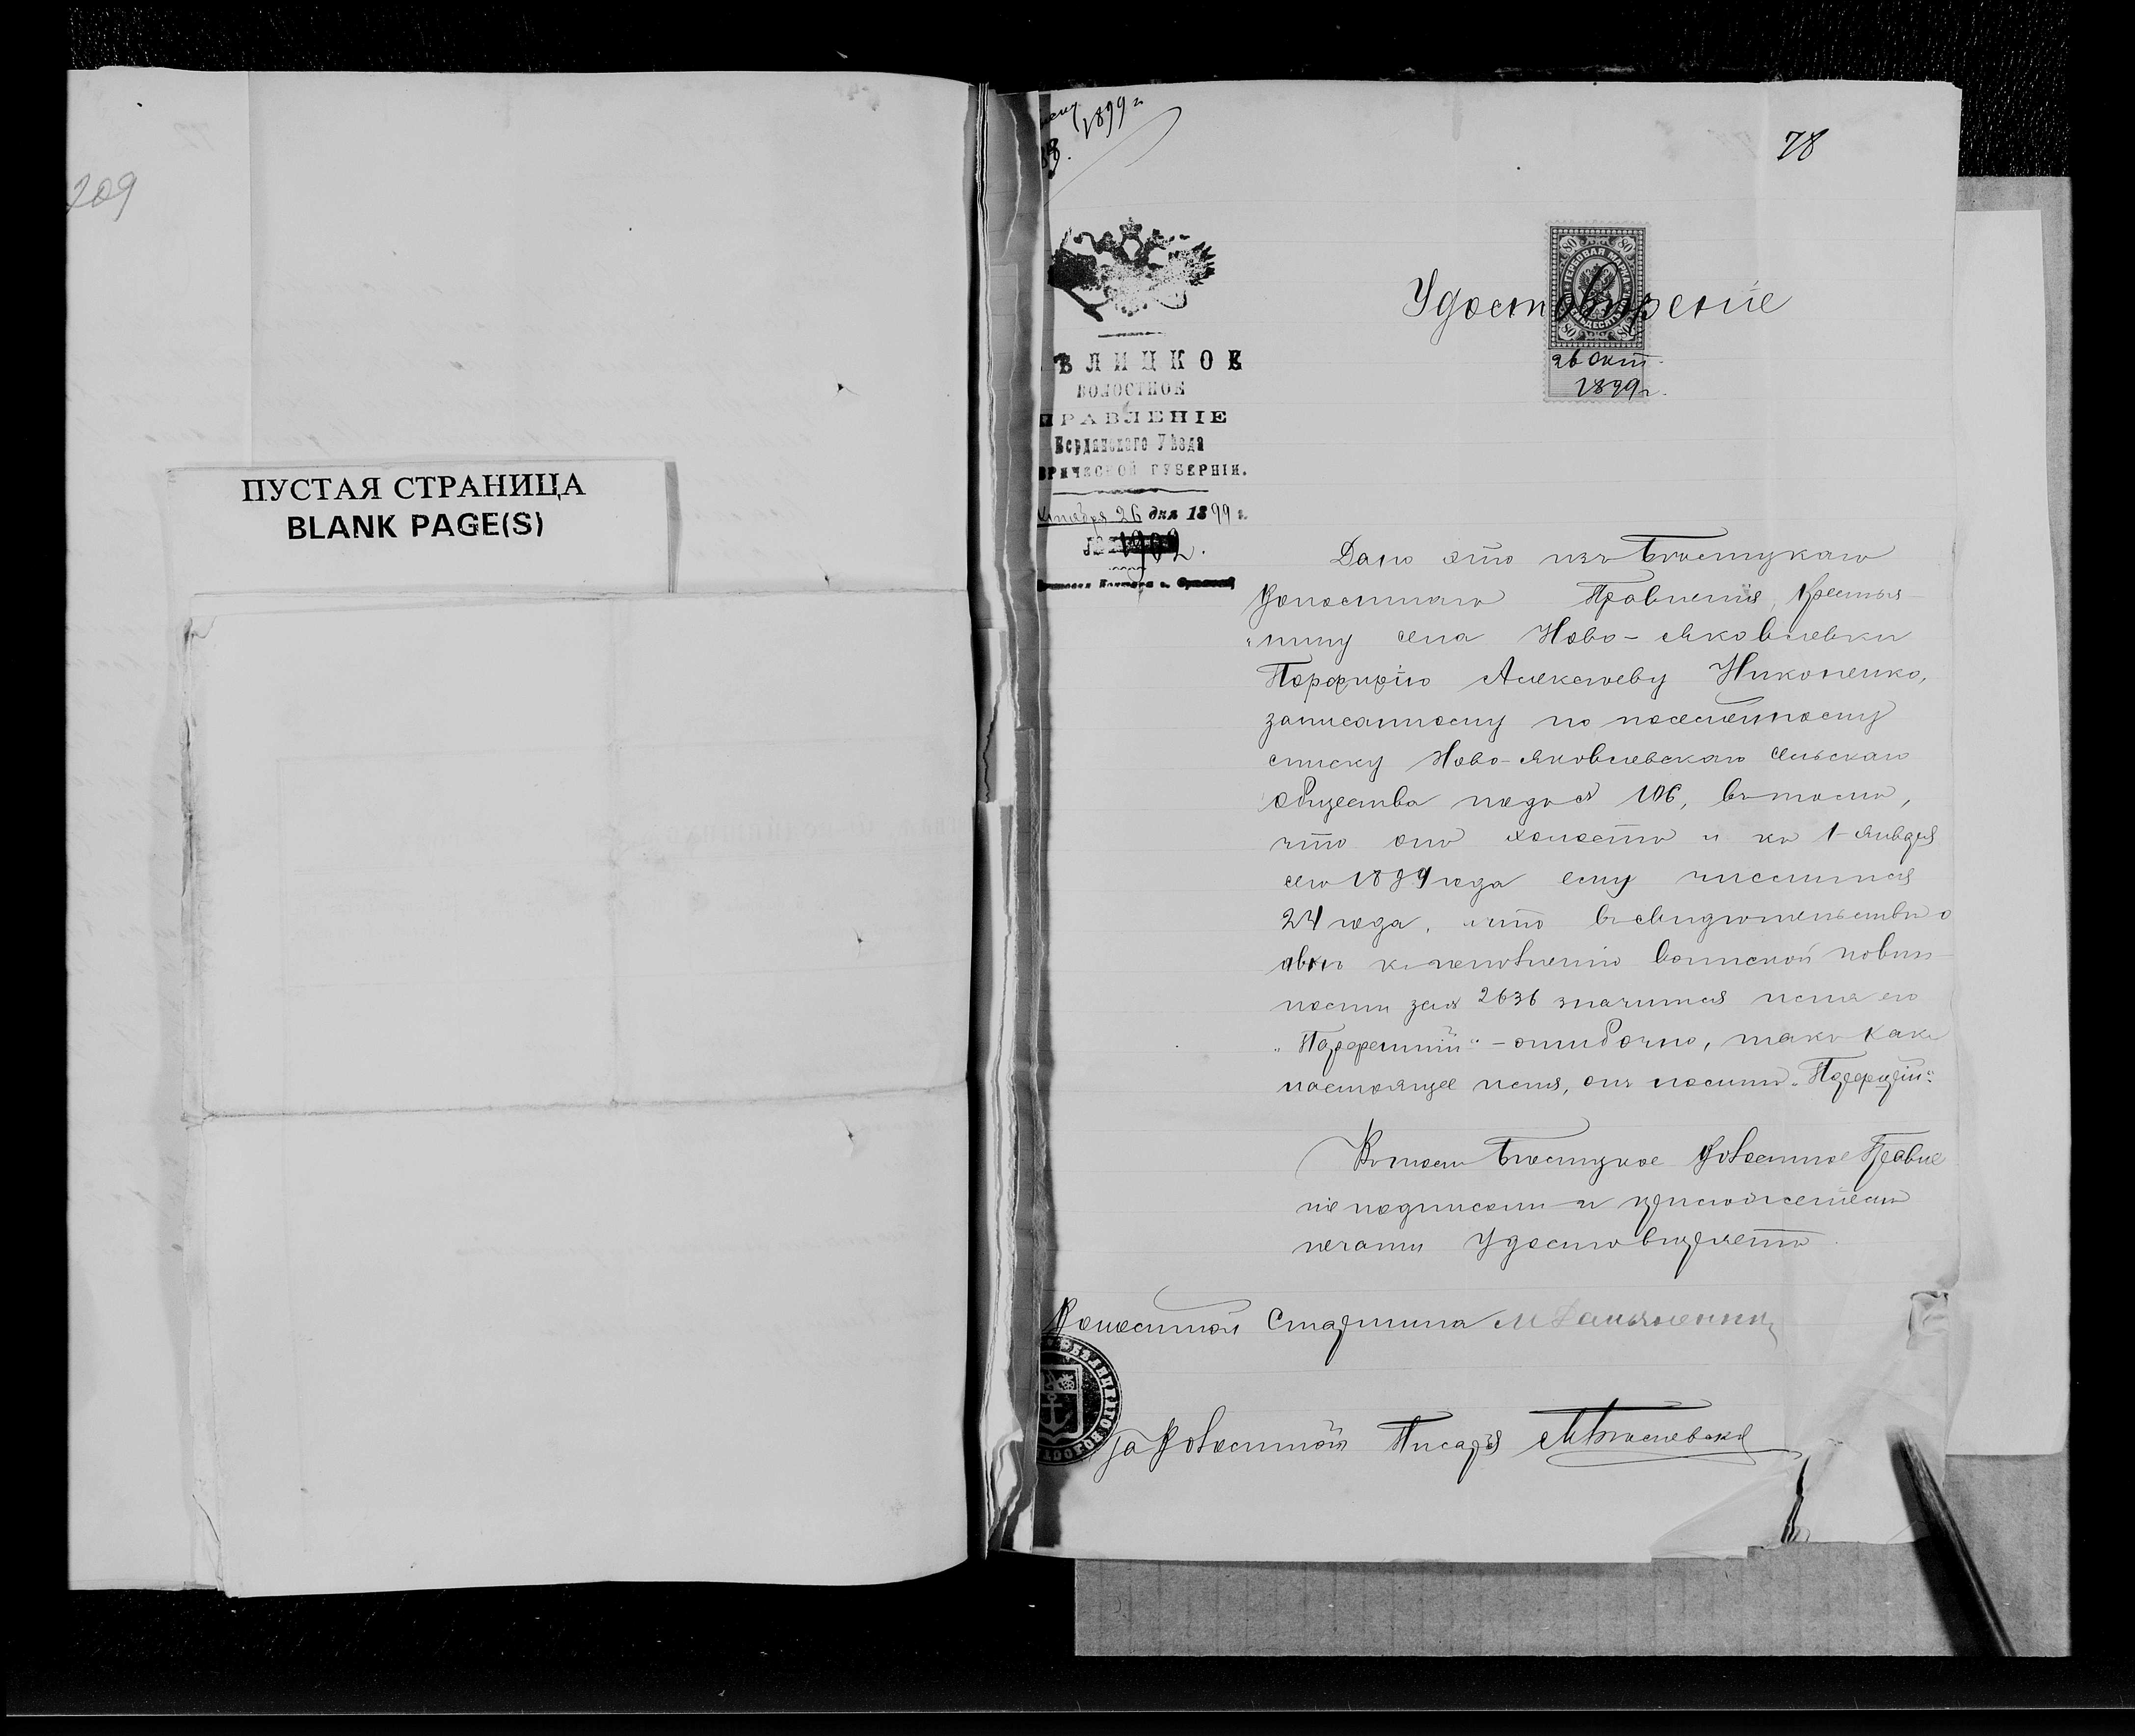 209
ПУСТАЯ СТРАНИЦА
BLANK PAGE(S)
1899 г
78
ѢЛИЦКОЕ
ВОЛОСТНОЕ
ПРАВЛЕНІЕ
Бердянскаго Уѣзда
ВРИЧЕСКОЙ ГУБЕРНІИ.
ктября 26 дня 1899 г.
80 80
ГЕРБОВАЯ МАРКА
80 80
Удостовѣреніе
26 Окт.
1899 г.
Дано это изъ Бѣлицкаго
Волостнаго Правленія, Крестья-
нину села Ново-Яковлевки
Порфирію Алексѣеву Никоненко,
записанному по посемейному
списку Ново-Яковлевскаго Сельскаго
Общества подъ № 106, въ томъ,
что онъ холостъ и къ 1 Января
сего 1899 года ему числится
24 года, и что въ свидѣтельствѣ о
явкѣ къ исполненію воинской повин-
ности за № 2636 значится имя его
"Парфентій" - ошибочно, такъ какъ
настоящее имя, онъ носитъ "Порфирій".
Въ томъ Бѣлицкое Волостное Правле
ніе подписомъ и приложеніемъ
печати удостовѣряетъ.
Волостной Старшина М Демьяненко
За Волостнаго Писаря